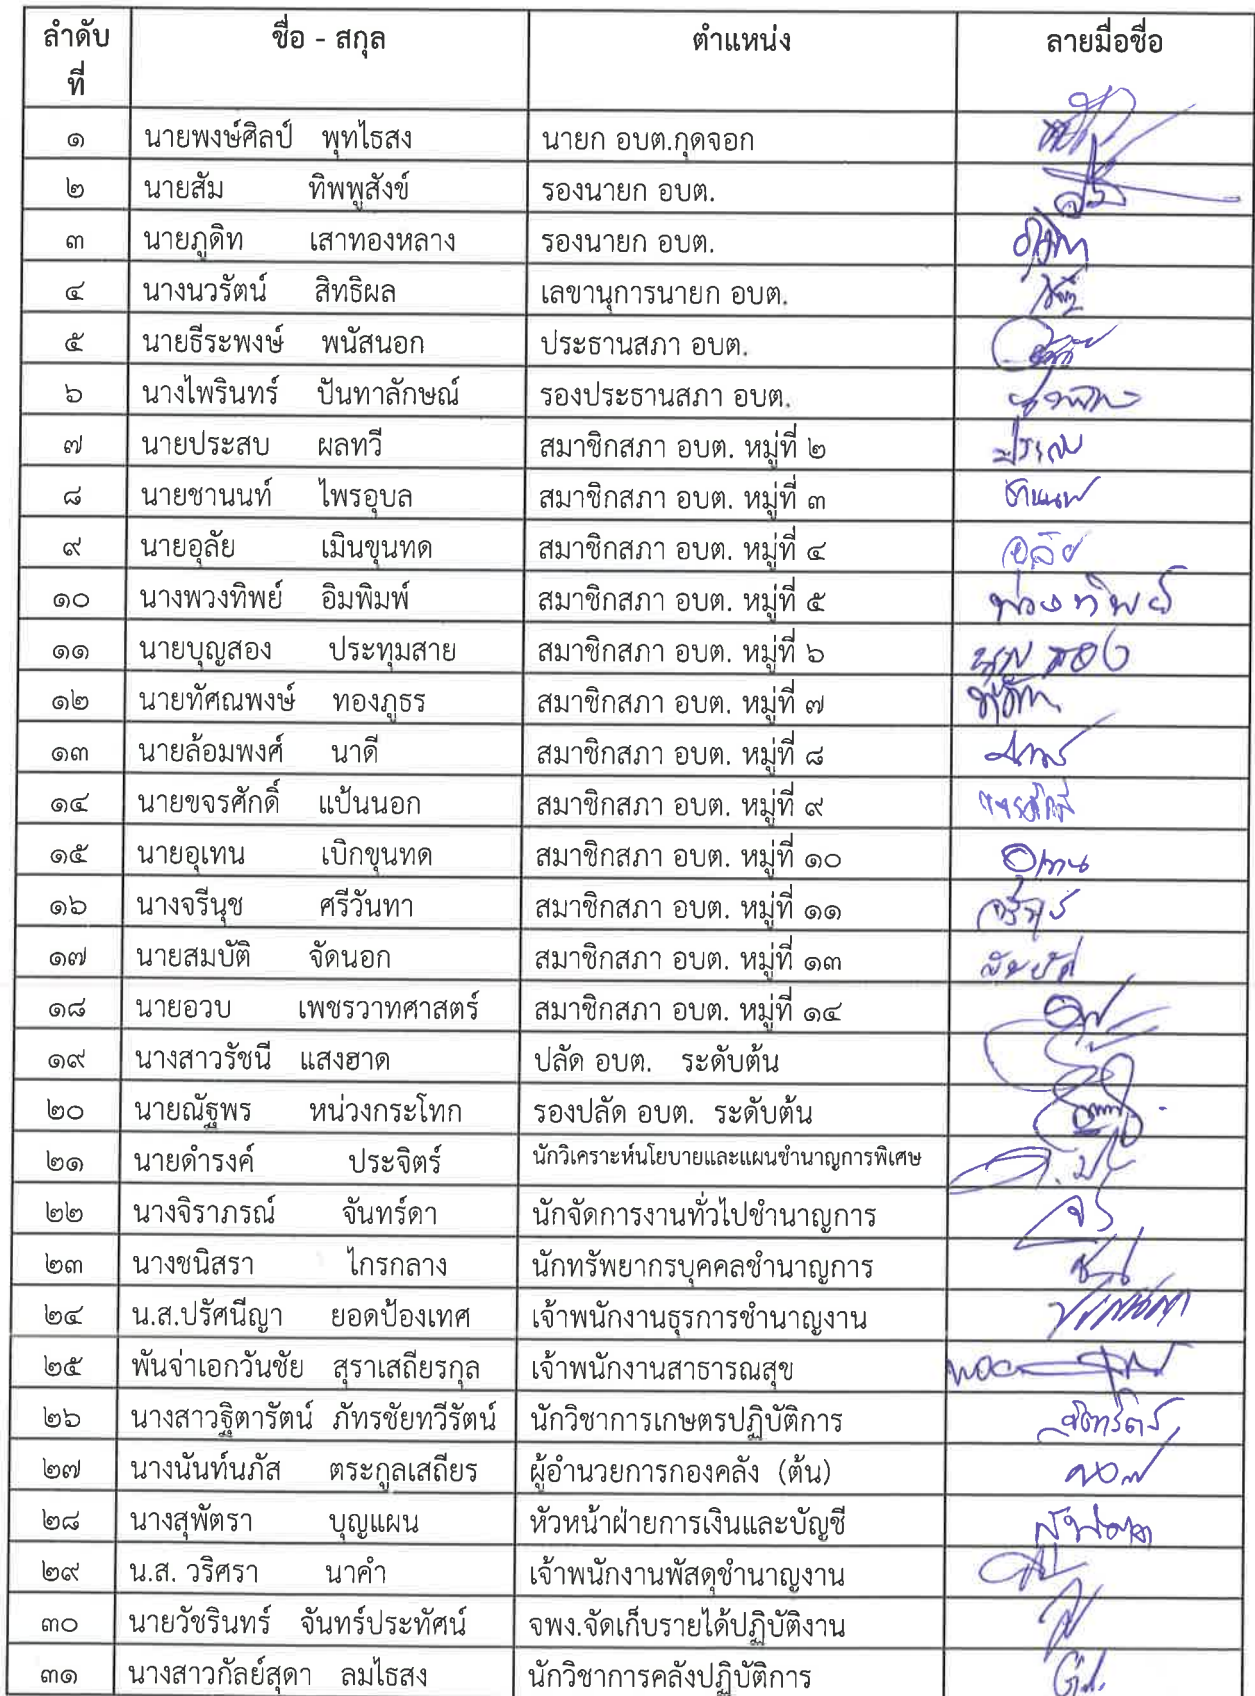 ลำดับ ชื่อ - สกุล ตำแหน่ง ลายมือชื่อ
ที่
๑ นายพงษ์ศิลป์ พุทไธสง นายก อบต.กุดจอก
๒ นายสัม ทิพพูสังข์ รองนายก อบต.
๓ นายภูดิท เสาทองหลาง รองนายก อบต.
๔ นางนวรัตน์ สิทธิผล เลขานุการนายก อบต.
๕ นายธีระพงษ์ พนัสนอก ประธานสภา อบต.
๖ นางไพรินทร์ ปันทาลักษณ์ รองประธานสภา อบต.
๗ นายประสบ ผลทวี สมาชิกสภา อบต. หมู่ที่ ๒
๘ นายชานนท์ ไพรอุบล สมาชิกสภา อบต. หมู่ที่ ๓
๙ นายอุลัย เมินขุนทด สมาชิกสภา อบต. หมู่ที่ ๔ อุลัย
๑๐ นางพวงทิพย์ อิมพิมพ์ สมาชิกสภา อบต. หมู่ที่ ๕ พ่วงทิพย์
๑๑ นายบุญสอง ประทุมสาย สมาชิกสภา อบต. หมู่ที่ ๖
๑๒ นายทัศณพงษ์ ทองภูธร สมาชิกสภา อบต. หมู่ที่ ๗
๑๓ นายล้อมพงศ์ นาดี สมาชิกสภา อบต. หมู่ที่ ๘
๑๔ นายขจรศักดิ์ แป้นนอก สมาชิกสภา อบต. หมู่ที่ ๙
๑๕ นายอุเทน เบิกขุนทด สมาชิกสภา อบต. หมู่ที่ ๑๐
๑๖ นางจรีนุช ศรีวันทา สมาชิกสภา อบต. หมู่ที่ ๑๑
๑๗ นายสมบัติ จัดนอก สมาชิกสภา อบต. หมู่ที่ ๑๓
๑๘ นายอวบ เพชรวาทศาสตร์ สมาชิกสภา อบต. หมู่ที่ ๑๔
๑๙ นางสาวรัชนี แสงฮาด ปลัด อบต. ระดับต้น
๒๐ นายณัฐพร หน่วงกระโทก รองปลัด อบต. ระดับต้น
๒๑ นายดำรงค์ ประจิตร์ นักวิเคราะห์นโยบายและแผนชำนาญการพิเศษ
๒๒ นางจิราภรณ์ จันทร์ดา นักจัดการงานทั่วไปชำนาญการ
๒๓ นางชนิสรา ไกรกลาง นักทรัพยากรบุคคลชำนาญการ
๒๔ น.ส.ปรัศนีญา ยอดป้องเทศ เจ้าพนักงานธุรการชำนาญงาน
๒๕ พันจ่าเอกวันชัย สุราเสถียรกุล เจ้าพนักงานสาธารณสุข
๒๖ นางสาวฐิตารัตน์ ภัทรชัยทวีรัตน์ นักวิชาการเกษตรปฏิบัติการ
๒๗ นางนันท์นภัส ตระกูลเสถียร ผู้อำนวยการกองคลัง (ต้น)
๒๘ นางสุพัตรา บุญแผน หัวหน้าฝ่ายการเงินและบัญชี
๒๙ น.ส. วริศรา นาคำ เจ้าพนักงานพัสดุชำนาญงาน
๓๐ นายวัชรินทร์ จันทร์ประทัศน์ จพง.จัดเก็บรายได้ปฏิบัติงาน
๓๑ นางสาวกัลย์สุดา ลมไธสง นักวิชาการคลังปฏิบัติการ